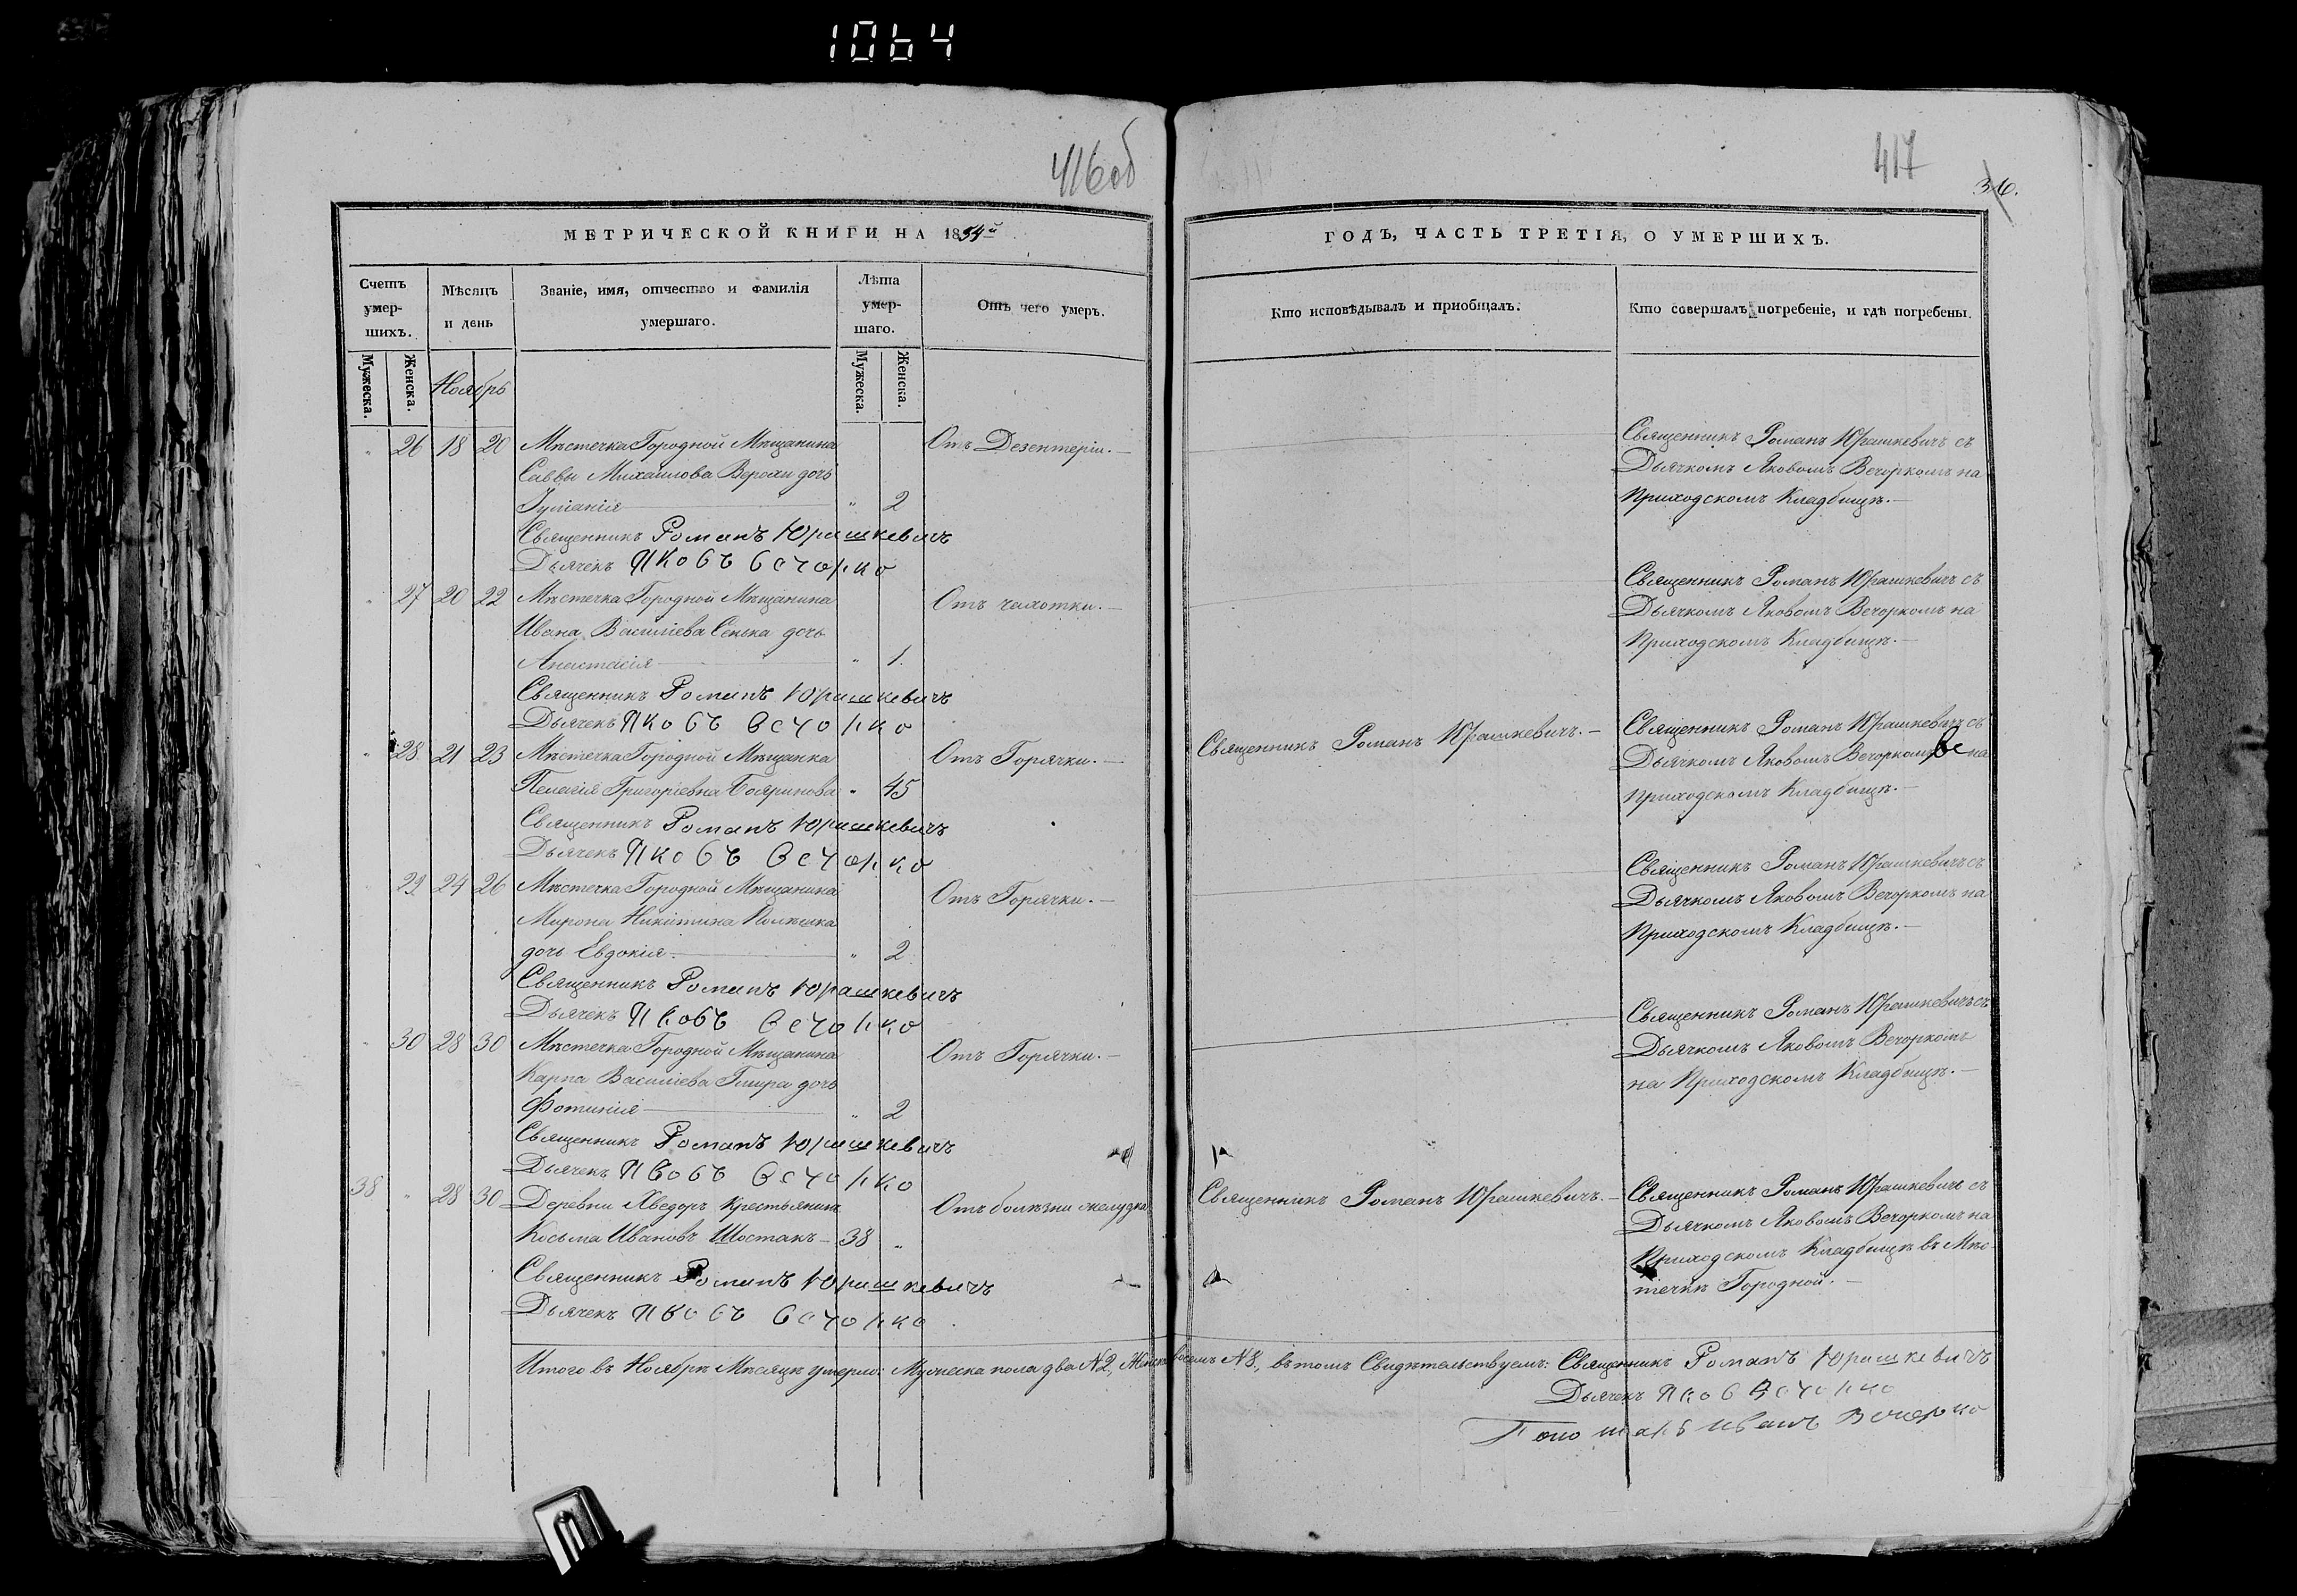 1064
416 об
МЕТРИЧЕСКОЙ КНИГИ НА 1854й
Счетъ умер-шихъ.
Мѣсяцъ и день
Званіе, имя, отчество и фамилія умершаго.
Лѣта умер-шаго.
Отъ чего умеръ.
Мужеска.
Женска.
Мужеска.
Женска.
Ноябрь
" 26 18 20 Мѣстечка Городной Мѣщанина Отъ Дезентеріи. —
Саввы Михаилова Верохи дочь
Іуліанія " 2
Священникъ Романъ Юрашкевичъ
Дьячекъ Яковъ Вечорко
" 27 20 22 Мѣстечка Городной Мѣщанина Отъ чахотки. —
Ивана Василіева Сенька дочь
Анастасія " 1.
Священникъ Романъ Юрашкевичъ
Дьячекъ Яковъ Вечорко
" 28 21 23 Мѣстечка Городной Мѣщанка Отъ Горячки. —
Пелагія Григоріевна Бояринова " 45
Священникъ Романъ Юрашкевичъ
Дьячекъ Яковъ Вечорко
29 24 26 Мѣстечка Городной Мѣщанина Отъ Горячки. —
Мирона Никитина
дочь Евдокія. " 2
Священникъ Романъ Юрашкевичъ
Дьячекъ Яковъ Вечорко
" 30 28 30 Мѣстечка Городной Мѣщанина Отъ Горячки. —
Карпа Василіева дочь
Фотинія " 2
Священникъ Романъ Юрашкевичъ
Дьячекъ Яковъ Вечорко
38 " 28 30 Деревни Хведоръ Крестьянинъ Отъ болѣзни желудка
Косьма Ивановъ Шостакъ — 38 "
Священникъ Романъ Юрашкевичъ
Дьячекъ Яковъ Вечорко
417
36.
ГОДЪ, ЧАСТЬ ТРЕТІЯ, О УМЕРШИХЪ.
Кто исповѣдывалъ и пріобщалъ.
Кто совершалъ погребеніе, и гдѣ погребены.
Священникъ Романъ Юрашкевичъ съ
Дьячкомъ Яковомъ Вечоркомъ на
Приходскомъ Кладбищѣ. —
Священникъ Романъ Юрашкевичъ съ
Дьячкомъ Яковомъ Вечоркомъ на
Приходскомъ Кладбищѣ. —
Священникъ Романъ Юрашкевичъ. — Священникъ Романъ Юрашкевичъ съ
Дьячкомъ Яковомъ Вечоркомъ на
Приходскомъ Кладбищѣ. —
Священникъ Романъ Юрашкевичъ съ
Дьячкомъ Яковомъ Вечоркомъ на
Приходскомъ Кладбищѣ. —
Священникъ Романъ Юрашкевичъ съ
Дьячкомъ Яковомъ Вечоркомъ
на Приходскомъ Кладбищѣ. —
Священникъ Романъ Юрашкевичъ. — Священникъ Романъ Юрашкевичъ съ
Дьячкомъ Яковомъ Вечоркомъ на
Приходскомъ Кладбищѣ въ Мѣс-
течкѣ Городной. —
Итого въ Ноябрѣ Мѣсяцѣ умерло: Мужеска пола два №2, Женска восемь №8, въ томъ Свидѣтельствуемъ: Священникъ Романъ Юрашкевичъ
Дьячекъ Яков Вечорко
Пономарь Иванъ Вечерко